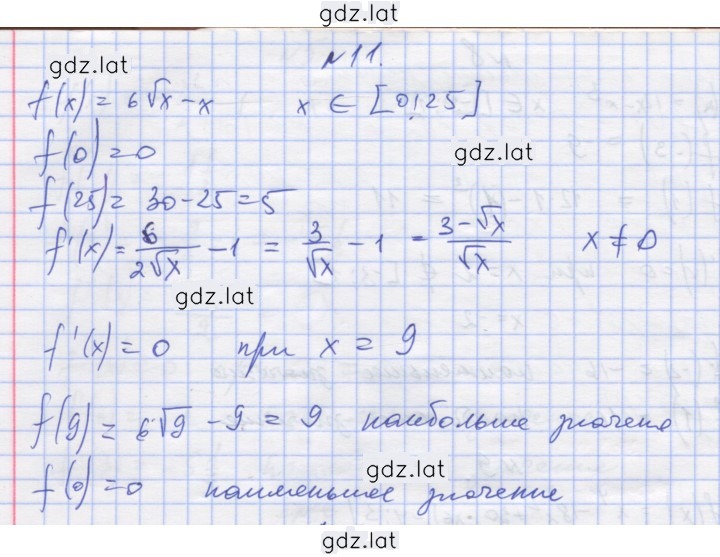 gdz.lat
№11.
gdz.lat
f(x) = 6√x - x x ∈ [0;25]
f(0) = 0
gdz.lat
f(25) = 30 - 25 = 5
f'(x) = 6/(2√x) - 1 = 3/√x - 1 = (3-√x)/√x x ≠ 0
gdz.lat
f'(x) = 0 при x = 9
f(9) = 6√9 - 9 = 9 наибольше значение
gdz.lat
f(0) = 0 наименьшее значение
gdz.lat